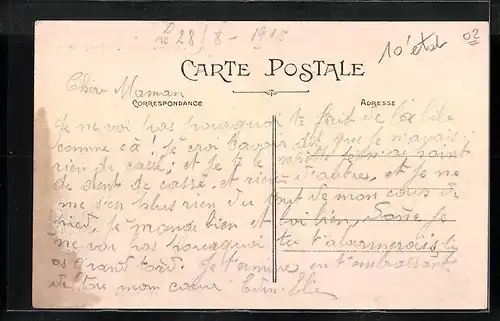 Le 28/8 - 1918
10' état
02
CARTE POSTALE
Chère Maman
CORRESPONDANCE
ADRESSE
Je ne voi pas pourquoi te fait de la bile
comme ça! je croi t'avoir dit que je n'avais
rien de cassé; et je te le
de dent de cassé, et rien d'autres, et je me
me s'en plus rien du tout de mon cou
pied, je mange bien et boi bien, Donc je
ne voi pas pourquoi tu t'alarmerais, tu
as grand tord. Je termine en t'embrassant
de tout mon cœur.